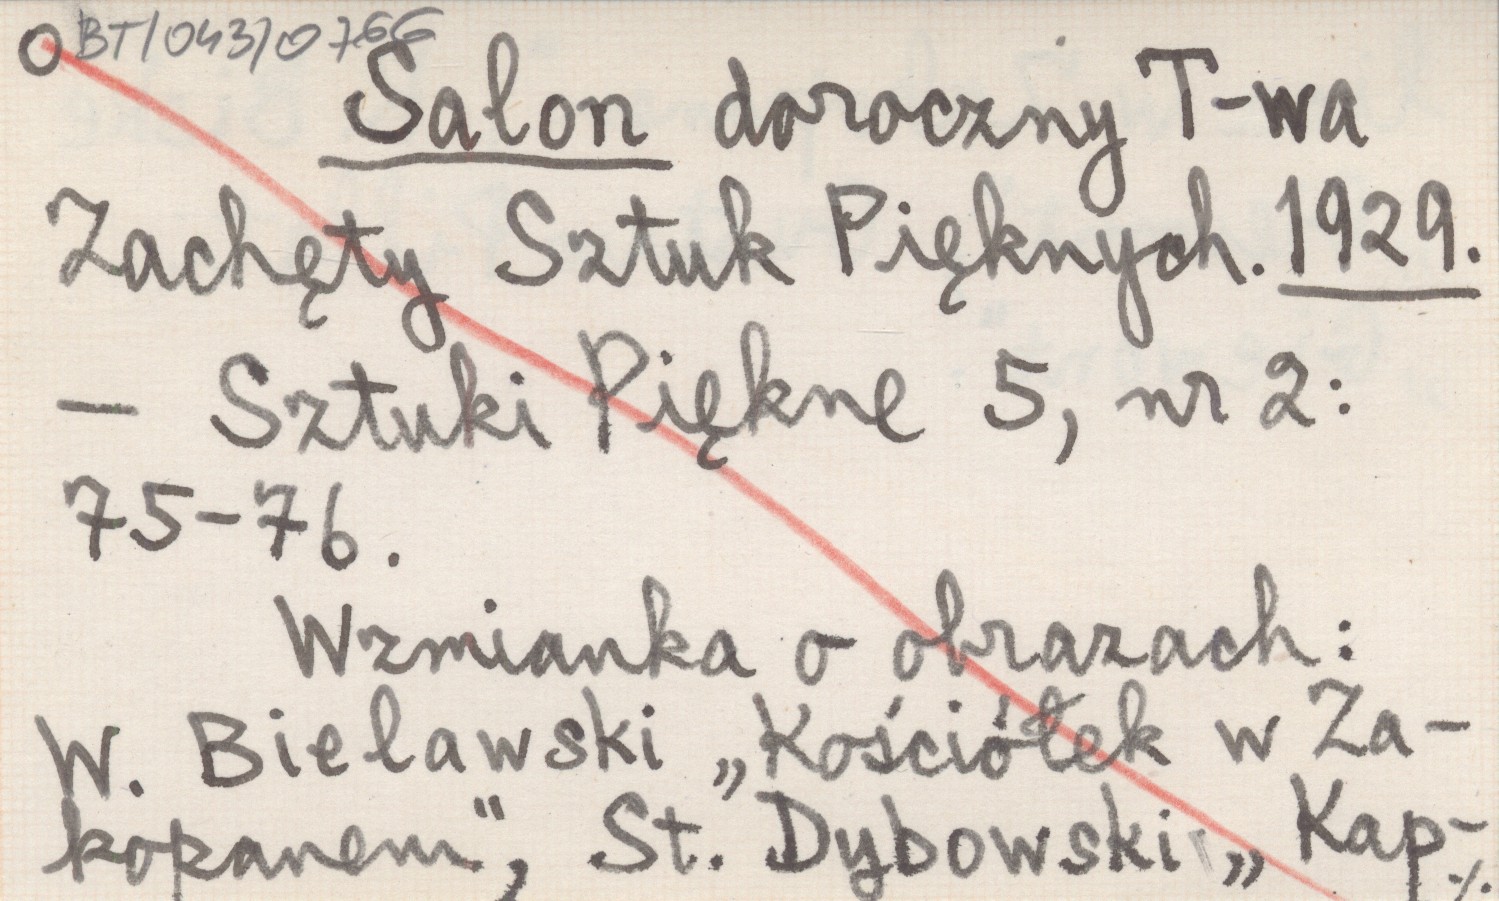 O BT/043/0766
Salon doroczny T-wa
Zachęty Sztuk Pięknych. 1929.
- Sztuki Piękne 5, nr 2:
75-76.
Wzmianka o obrazach:
W. Bielawski „Kościółek w Za-
kopanem", St. Dybowski „Kap-
-/.